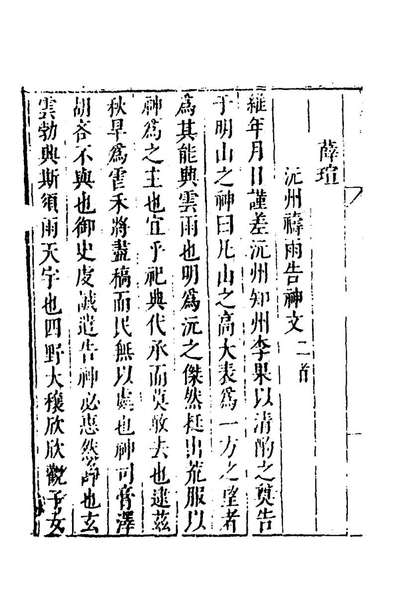 薛瑄
沅州禱雨告神文二首
維年月日謹差沅州知州李果以清酌之奠告
于明山之神曰凡山之高大表為一方之望者
為其能興雲雨也明為沅之傑然挺出荒服以
神為之主也宜乎祀典代承而莫敢去也逮茲
秋旱為害禾將盡槁而民無以處也神司膏澤
胡吝不興也御史虔誠遣告神必惠然也玄
雲勃興斯須雨天宇也四野大穣欣欣觀子女